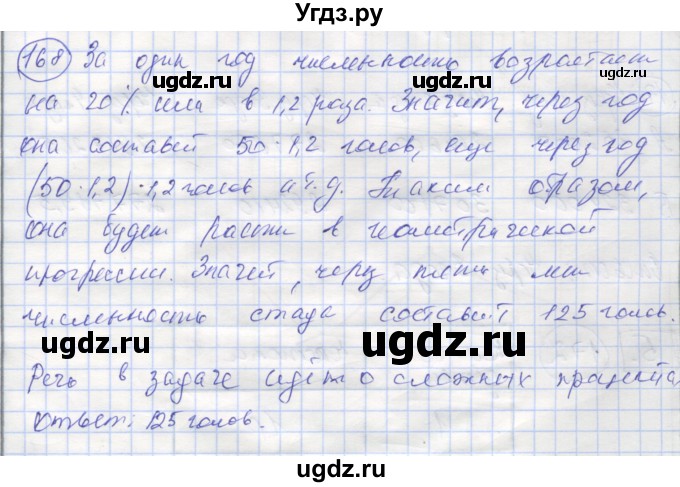 Угдз.ру
168 За один год численность возрастает
на 20% или в 1,2 раза. Значит, через год
она составит 50·1,2 голов, еще через год
(50·1,2)·1,2 голов и т.д. Таким образом,
она будет расти в геометрической
прогрессии. Значит, через пять лет
численность стада составит 125 голов.
Речь в задаче идёт о сложных процента
Ответ: 125 голов.
uгдz.ru
uгдz.ru
uгдz.ru
uгдz.ru
uгдz.ru
uгдz.ru
uгдz.ru